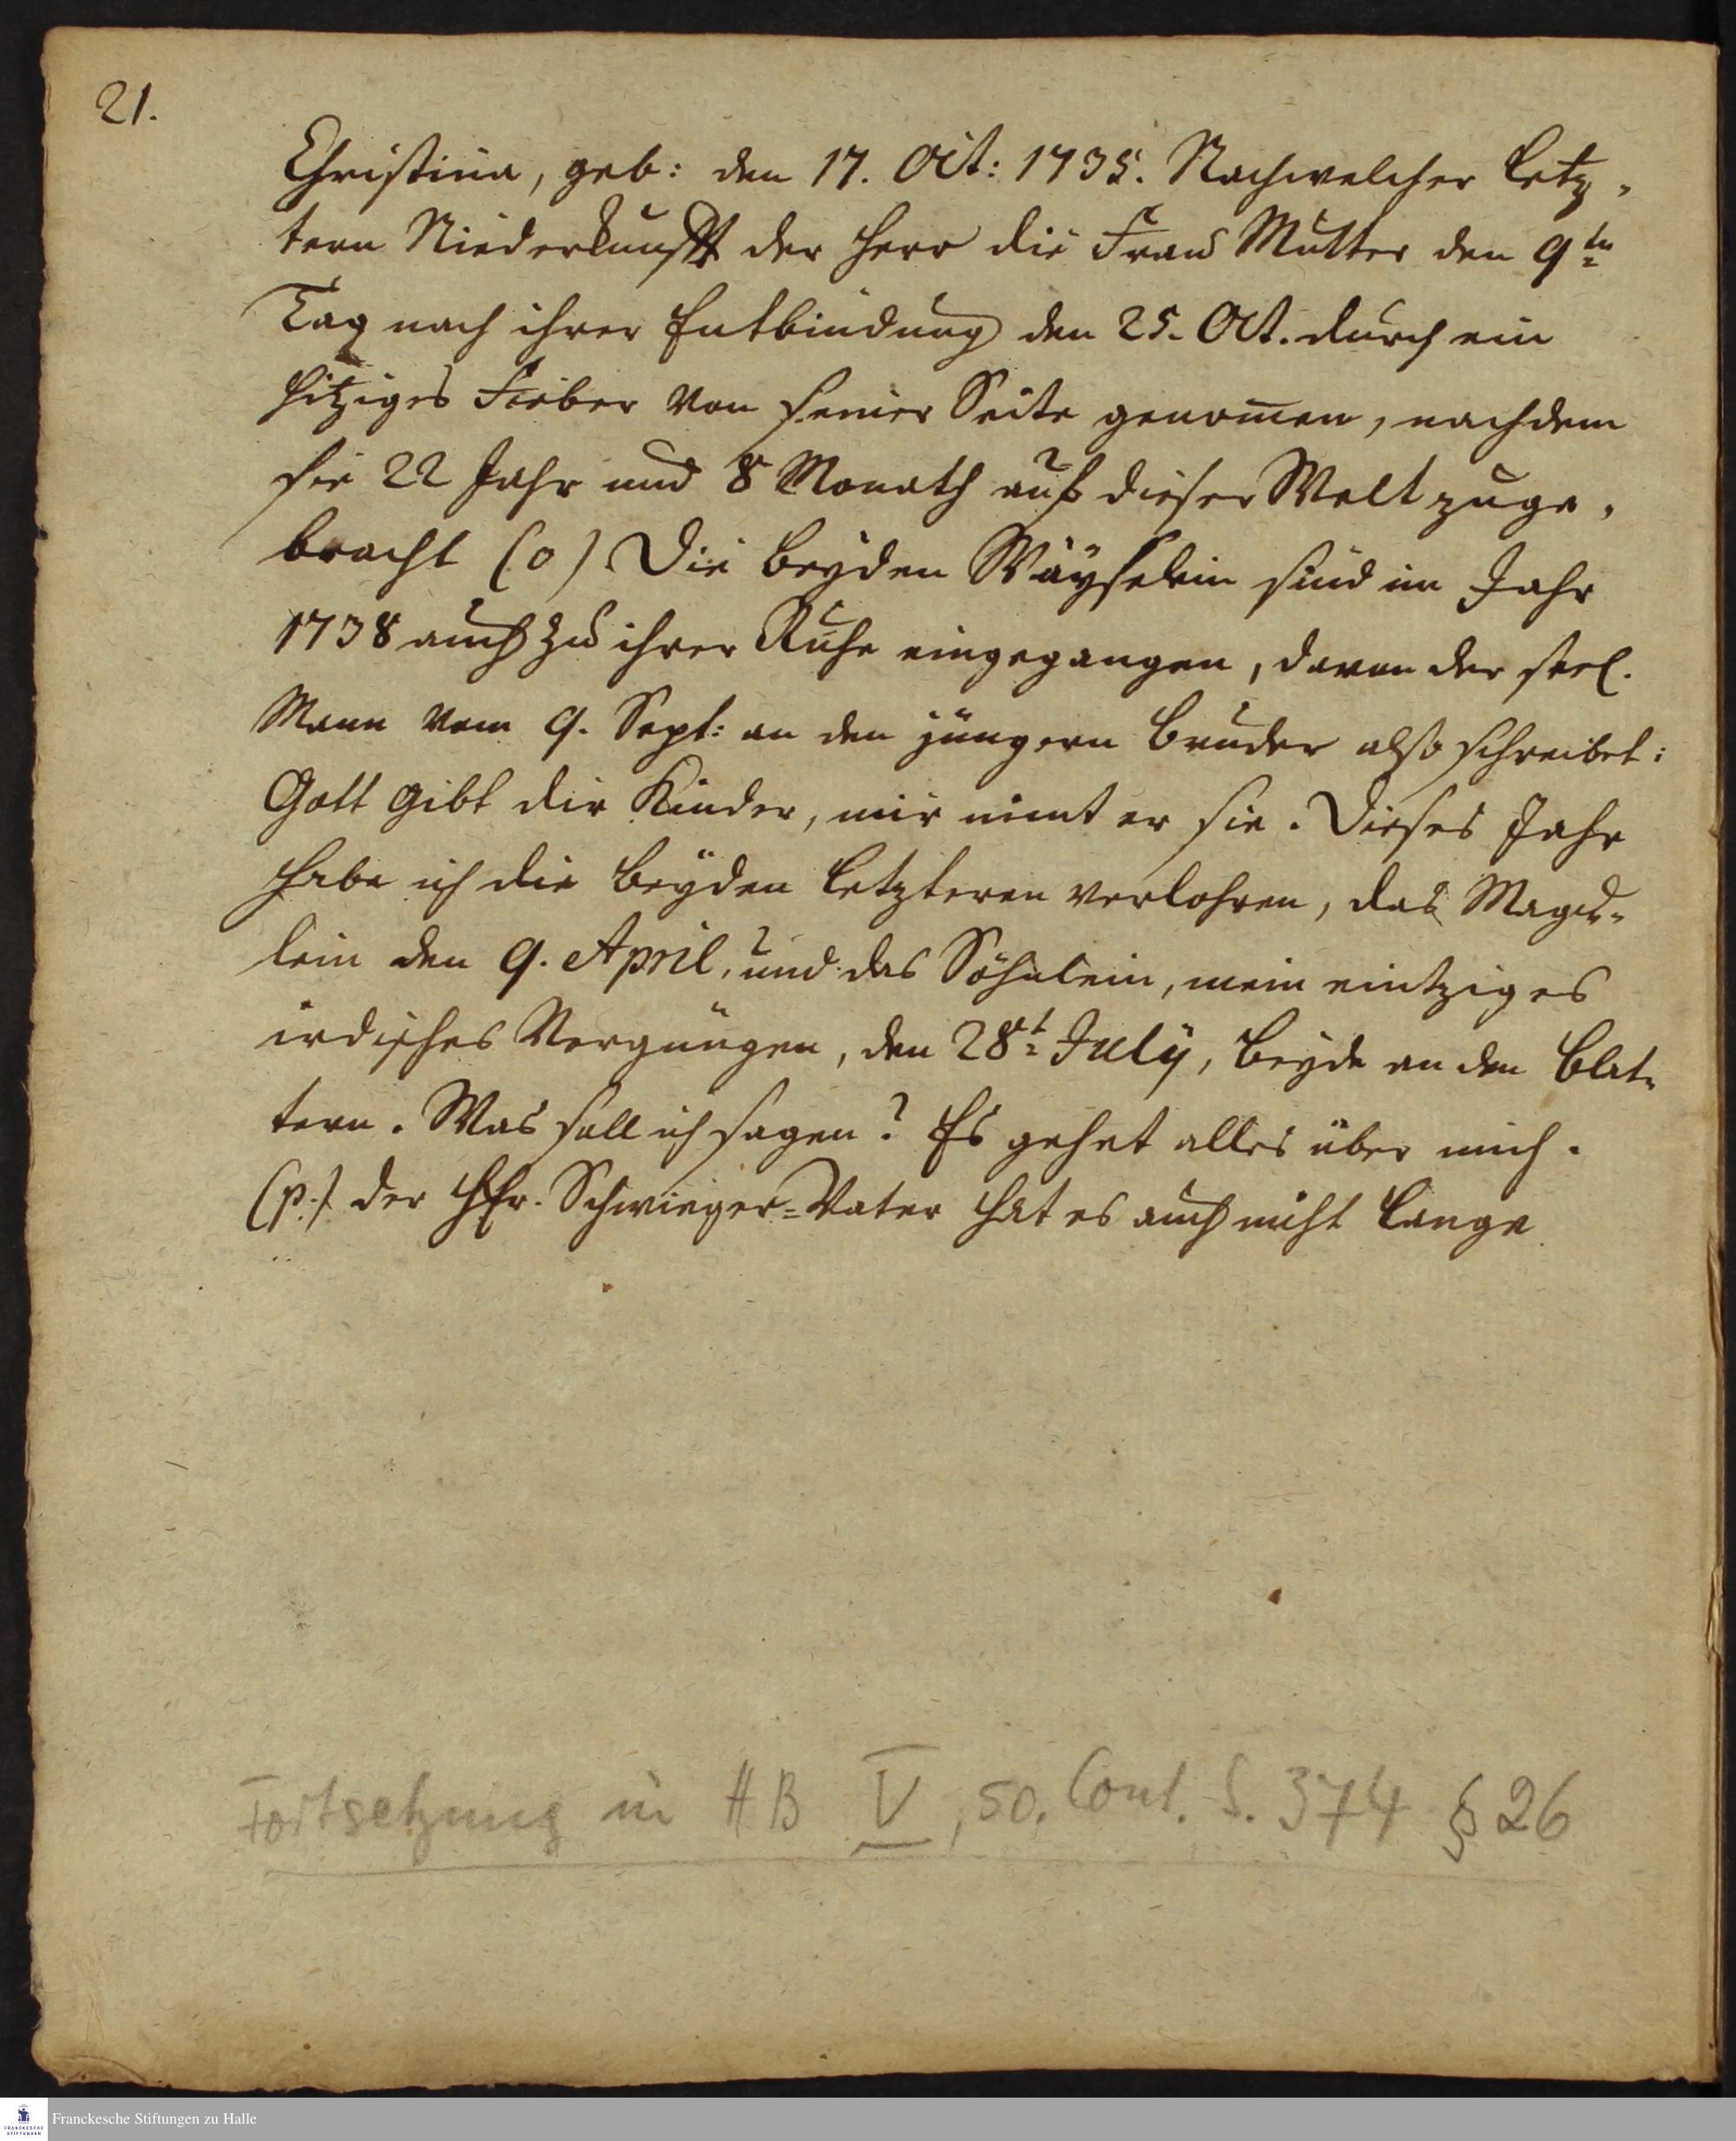 21.
Christina, geb: den 17. Oct: 1735. Nach welcher letz-
tern Niederkunfft der Herr die Frau Mutter den 9ten
Tag nach ihrer Entbindung den 25. Oct. durch ein
hitziges Fieber von seiner Seite genom̄en, nachdem
sie 22 Jahr und 8 Monath auf dieser Welt zuge-
bracht (o) Die beyden Wäyselein sind im Jahr
1738 auch zu ihrer Ruhe eingegangen, davon der seel.
Mann vom 9. Sept: an den jüngern Bruder also schreibet:
Gott gibt dir Kinder, mir nimt er sie. Dieses Jahr
habe ich die beyden letzteren verlohren, das Mägd-
lein den 9. April, und das Söhnlein, mein eintziges
irdisches Vergnügen, den 28t July, beyde an den Blat-
tern. Was soll ich sagen? Es gehet alles über mich.
(p.) der HEr. Schwieger-Vater hat es auch nicht lange
Fortsetzung in HB V, 50. Cont. S. 374 § 26
Franckesche Stiftungen zu Halle
FRANCKESCHE
STIFTUNGEN